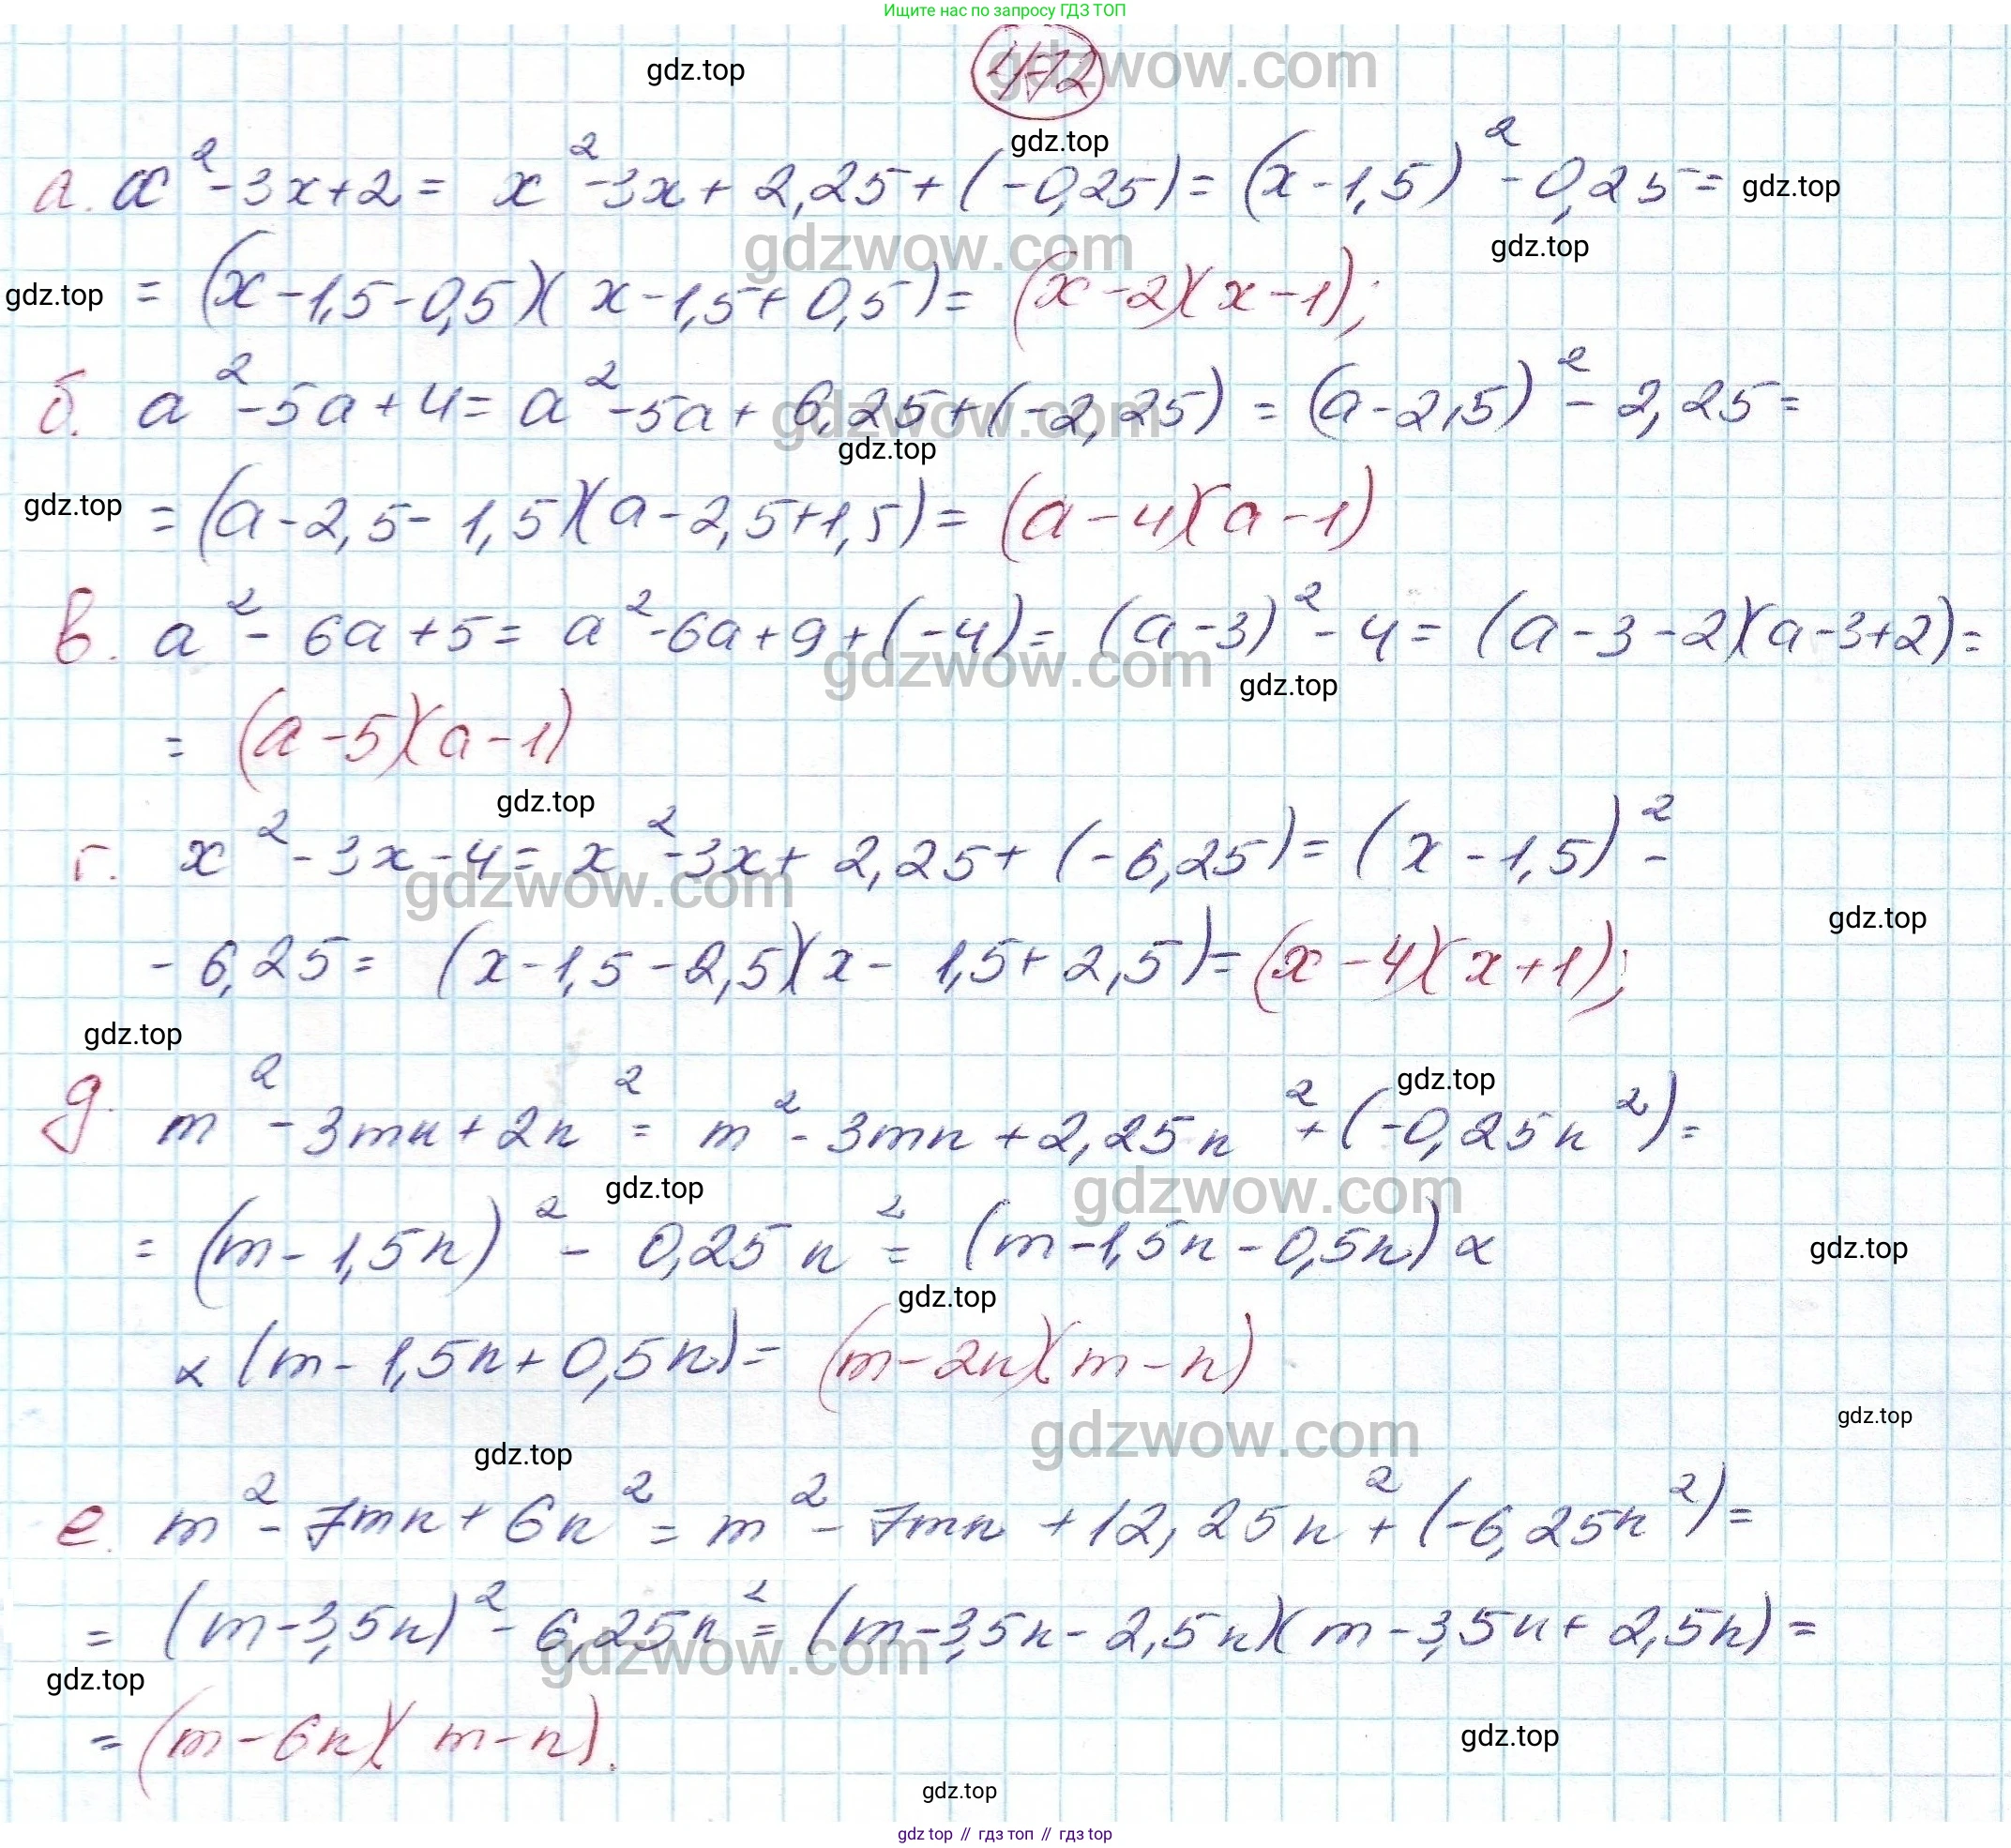 Ищите нас по запросу ГДЗ ТОП
gdzwow.com
gdz.top
472
gdz.top
а. x² - 3x + 2 = x² - 3x + 2,25 + (-0,25) = (x - 1,5)² - 0,25 =
gdz.top
gdzwow.com
gdz.top
gdz.top
= (x - 1,5 - 0,5)(x - 1,5 + 0,5) = (x - 2)(x - 1);
б. a² - 5a + 4 = a² - 5a + 6,25 + (-2,25) = (a - 2,5)² - 2,25 =
gdzwow.com
gdz.top
gdz.top
= (a - 2,5 - 1,5)(a - 2,5 + 1,5) = (a - 4)(a - 1)
в. a² - 6a + 5 = a² - 6a + 9 + (-4) = (a - 3)² - 4 = (a - 3 - 2)(a - 3 + 2) =
gdzwow.com
gdz.top
= (a - 5)(a - 1)
gdz.top
г. x² - 3x - 4 = x² - 3x + 2,25 + (-6,25) = (x - 1,5)² -
gdzwow.com
gdz.top
- 6,25 = (x - 1,5 - 2,5)(x - 1,5 + 2,5) = (x - 4)(x + 1);
gdz.top
gdz.top
д. m² - 3mn + 2n² = m² - 3mn + 2,25n² + (-0,25n²) =
gdz.top
gdzwow.com
= (m - 1,5n)² - 0,25n² = (m - 1,5n - 0,5n) ×
gdz.top
gdz.top
× (m - 1,5n + 0,5n) = (m - 2n)(m - n)
gdz.top
gdzwow.com
gdz.top
е. m² - 7mn + 6n² = m² - 7mn + 12,25n² + (-6,25n²) =
= (m - 3,5n)² - 6,25n² = (m - 3,5n - 2,5n)(m - 3,5n + 2,5n) =
gdzwow.com
gdz.top
= (m - 6n)(m - n).
gdz.top
gdz.top
gdz top // гдз топ // gdz top